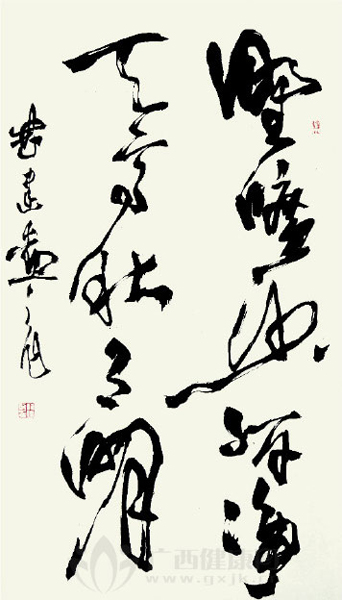 野曠沙岸淨
天高秋月明
广西健康
www.gxjk.